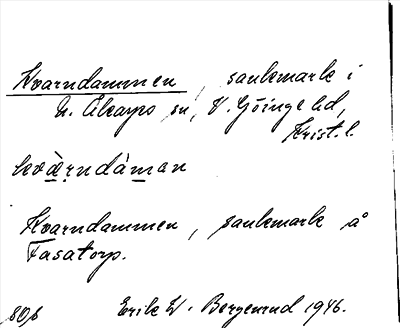 Kvarndammen, sankmark i
N. Åkarps sn, V. Göinge hd,
Krist. l.
kvàrndáman
Kvarndammen, sankmark å
Fasatorp.
80,6 Erik W. Bergenrud 1946.